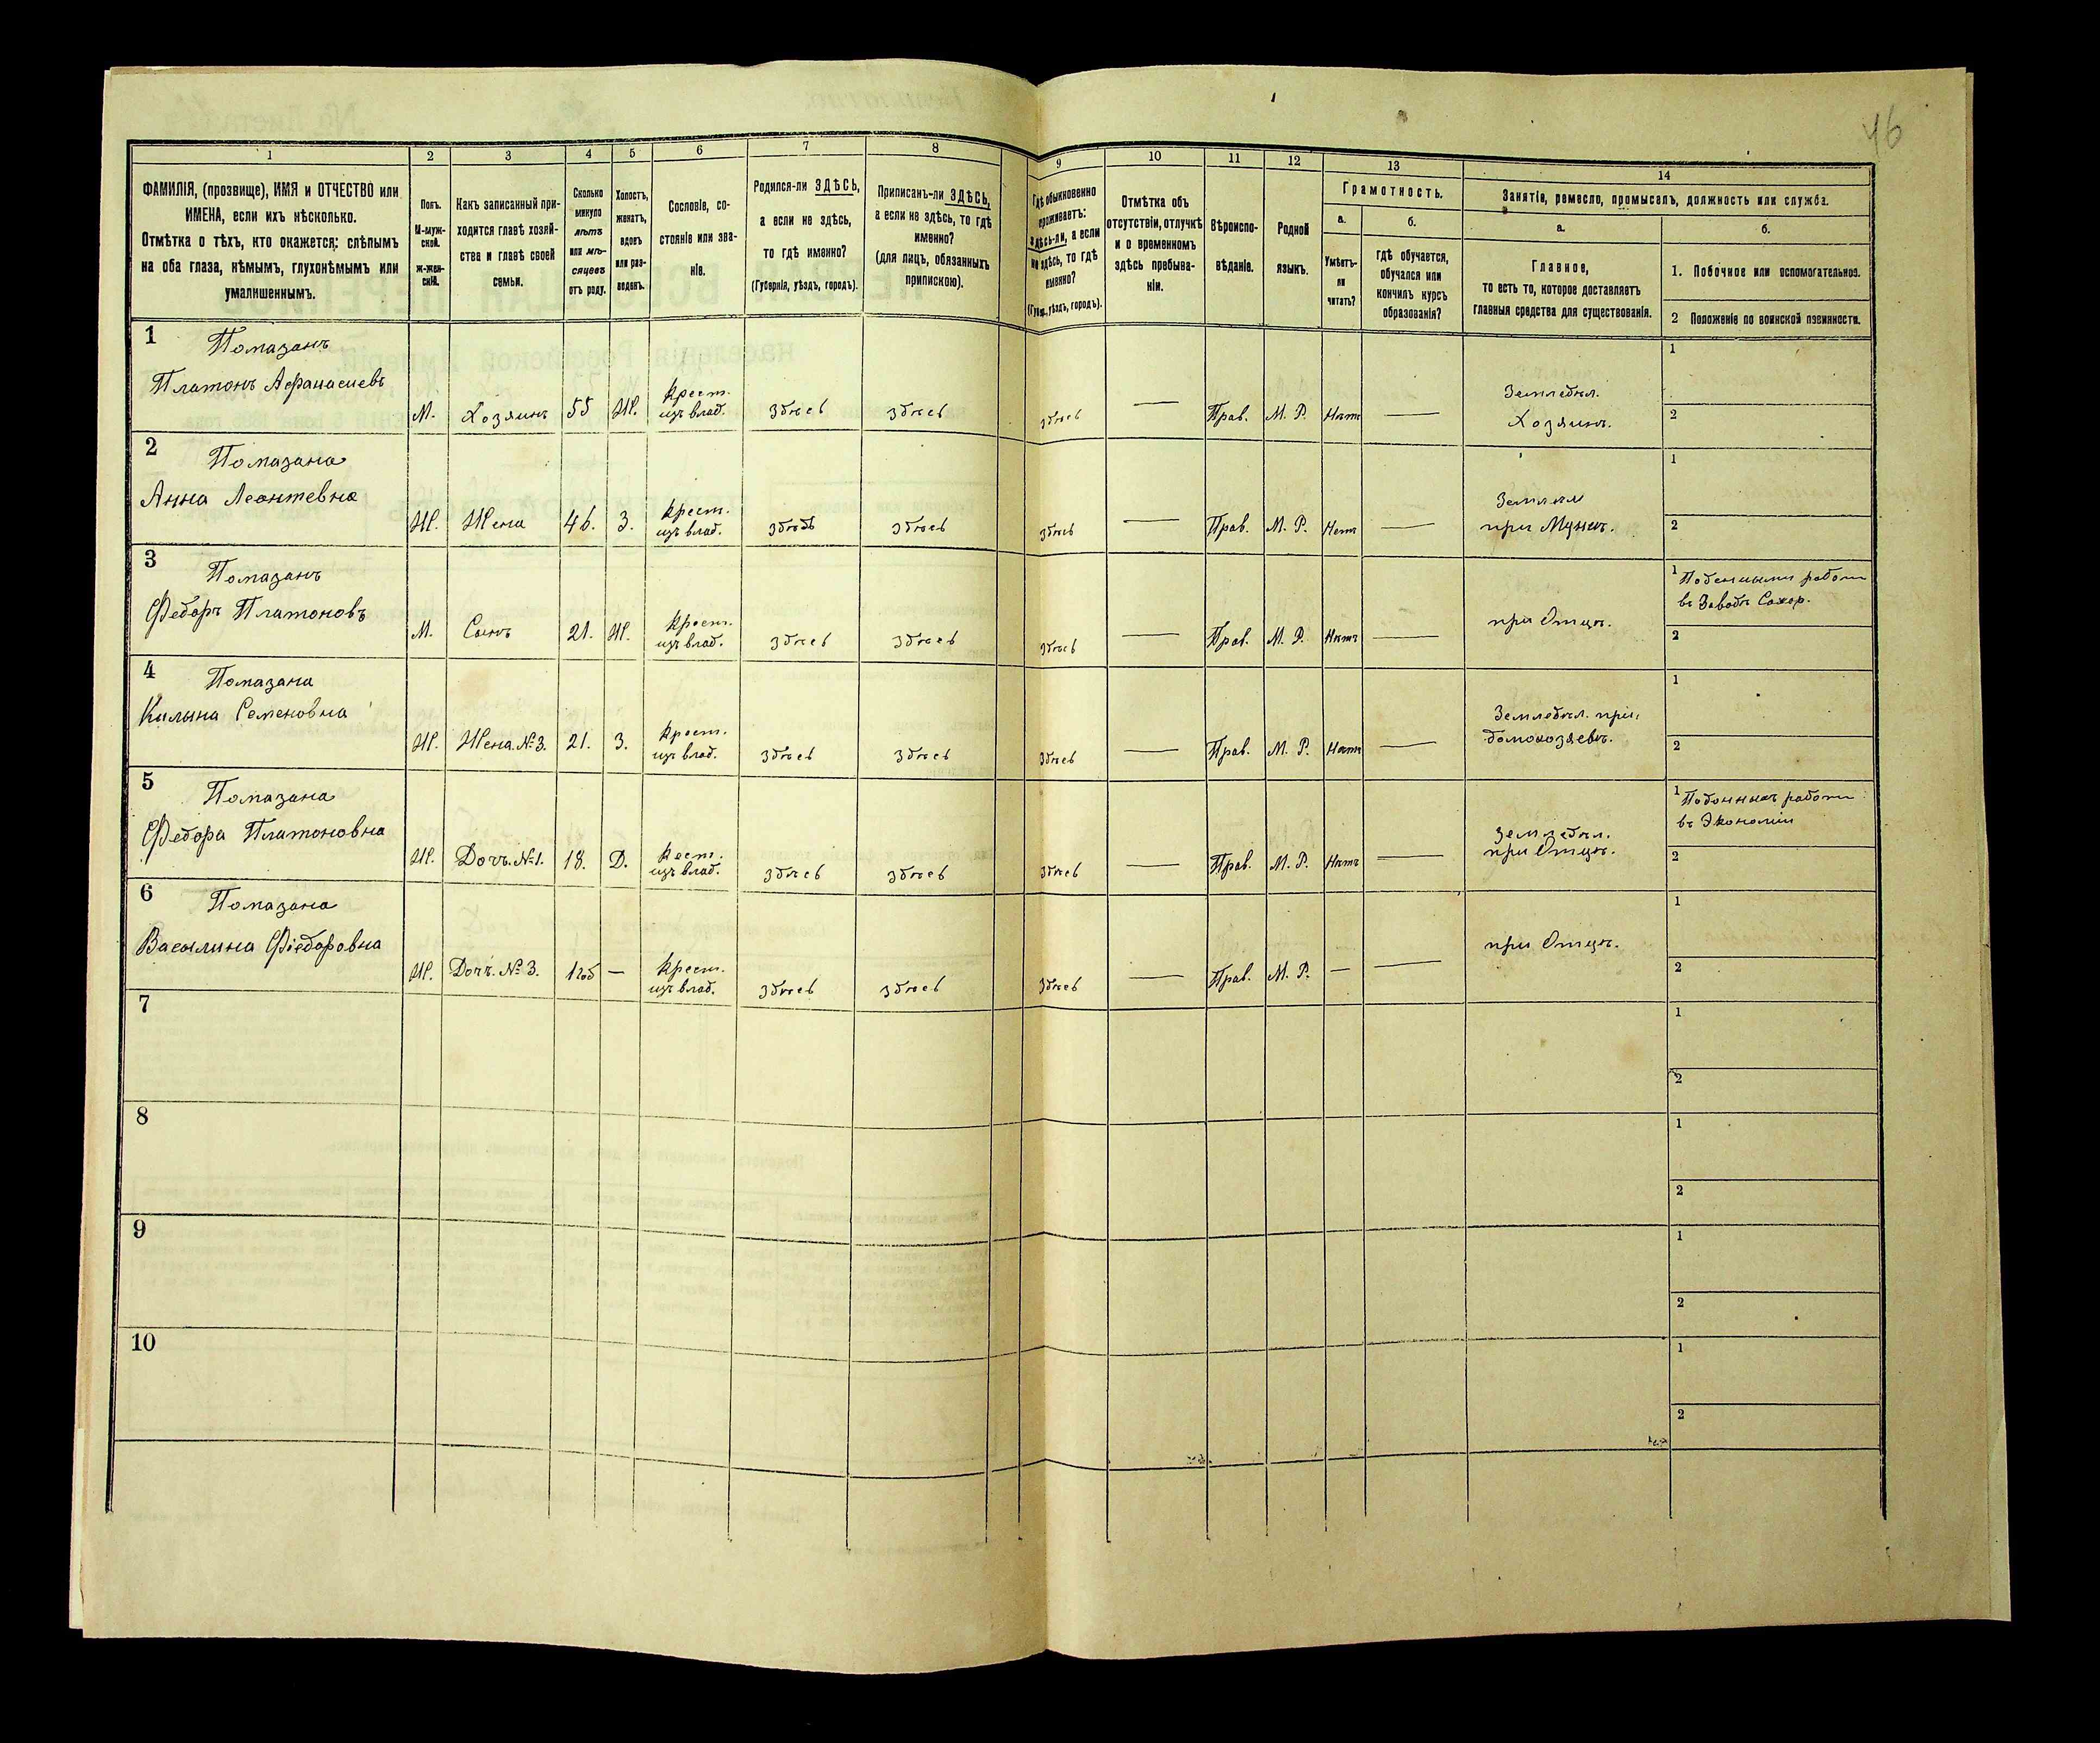 46
1 2 3 4 5 6 7 8 9 10 11 12 13 14
ФАМИЛІЯ, (прозвище), ИМЯ и ОТЧЕСТВО или
ИМЕНА, если ихъ нѣсколько.
Отмѣтка о тѣхъ, кто окажется: слѣпымъ
на оба глаза, нѣмымъ, глухонѣмымъ или
умалишеннымъ.
Полъ.
М-муж-
ской.
Ж-жен-
скій.
Какъ записанный при-
ходится главѣ хозяй-
ства и главѣ своей
семьи.
Сколько
минуло
лѣтъ
или мѣ-
сяцевъ
отъ роду.
Холостъ,
женатъ,
вдовъ
или раз-
веденъ.
Сословіе, со-
стояніе или зва-
ніе.
Родился-ли ЗДѢСЬ,
а если не здѣсь,
то гдѣ именно?
(Губернія, уѣздъ, городъ).
Приписанъ-ли ЗДѢСЬ,
а если не здѣсь, то гдѣ
именно?
(для лицъ, обязанныхъ
припискою).
Гдѣ обыкновенно
проживаетъ:
здѣсь-ли, а если
не здѣсь, то гдѣ
именно?
(Губ., уѣздъ, городъ).
Отмѣтка объ
отсутствіи, отлучкѣ
и о временномъ
здѣсь пребыва-
ніи.
Вѣроиспо-
вѣданіе.
Родной
языкъ.
Грамотность.
а.
Умѣетъ-
ли
читать?
б.
гдѣ обучается,
обучался или
кончилъ курсъ
образованія?
Занятіе, ремесло, промыселъ, должность или служба.
а.
Главное,
то есть то, которое доставляетъ
главныя средства для существованія.
б.
1. Побочное или вспомогательное.
2 Положеніе по воинской повинности.
1 Помазанъ
Платонъ Афанасиевъ
М. Хозяинъ 55 Ж. Крест.
изъ влад. Здѣсь Здѣсь Здѣсь — Прав. М. Р. Нѣтъ —
Земледѣл.
Хозяинъ.
1
2
2 Помазана
Анна Леонтевна
Ж. Жена 46. З. Крест.
изъ влад. Здѣсь Здѣсь Здѣсь — Прав. М. Р. Нетъ —
при Мужѣ.
1
2
3 Помазанъ
Федоръ Платоновъ
М. Сынъ 21. Ж. Крест.
изъ влад. Здѣсь Здѣсь Здѣсь — Прав. М. Р. Нѣтъ —
при Отцѣ.
1
въ Заводѣ Сахар.
2
4 Помазана
Килына Семеновна
Ж. Жена. №3. 21. З. Крест.
изъ влад. Здѣсь Здѣсь Здѣсь — Прав. М. Р. Нѣтъ —
Земледѣл. при
домохозяевѣ.
1
2
5 Помазана
Федора Платоновна
Ж. Дочь. №1. 18. Д. Крест.
изъ влад. Здѣсь Здѣсь Здѣсь — Прав. М. Р. Нѣтъ —
Земледѣл.
при Отцѣ.
1
въ Экономіи
2
6 Помазана
Василина Фіедоровна
Ж. Дочь. №3. 1 год — Крест.
изъ влад. Здѣсь Здѣсь Здѣсь — Прав. М. Р. — —
при Отцѣ.
1
2
7
1
2
8
1
2
9
1
2
10
1
2